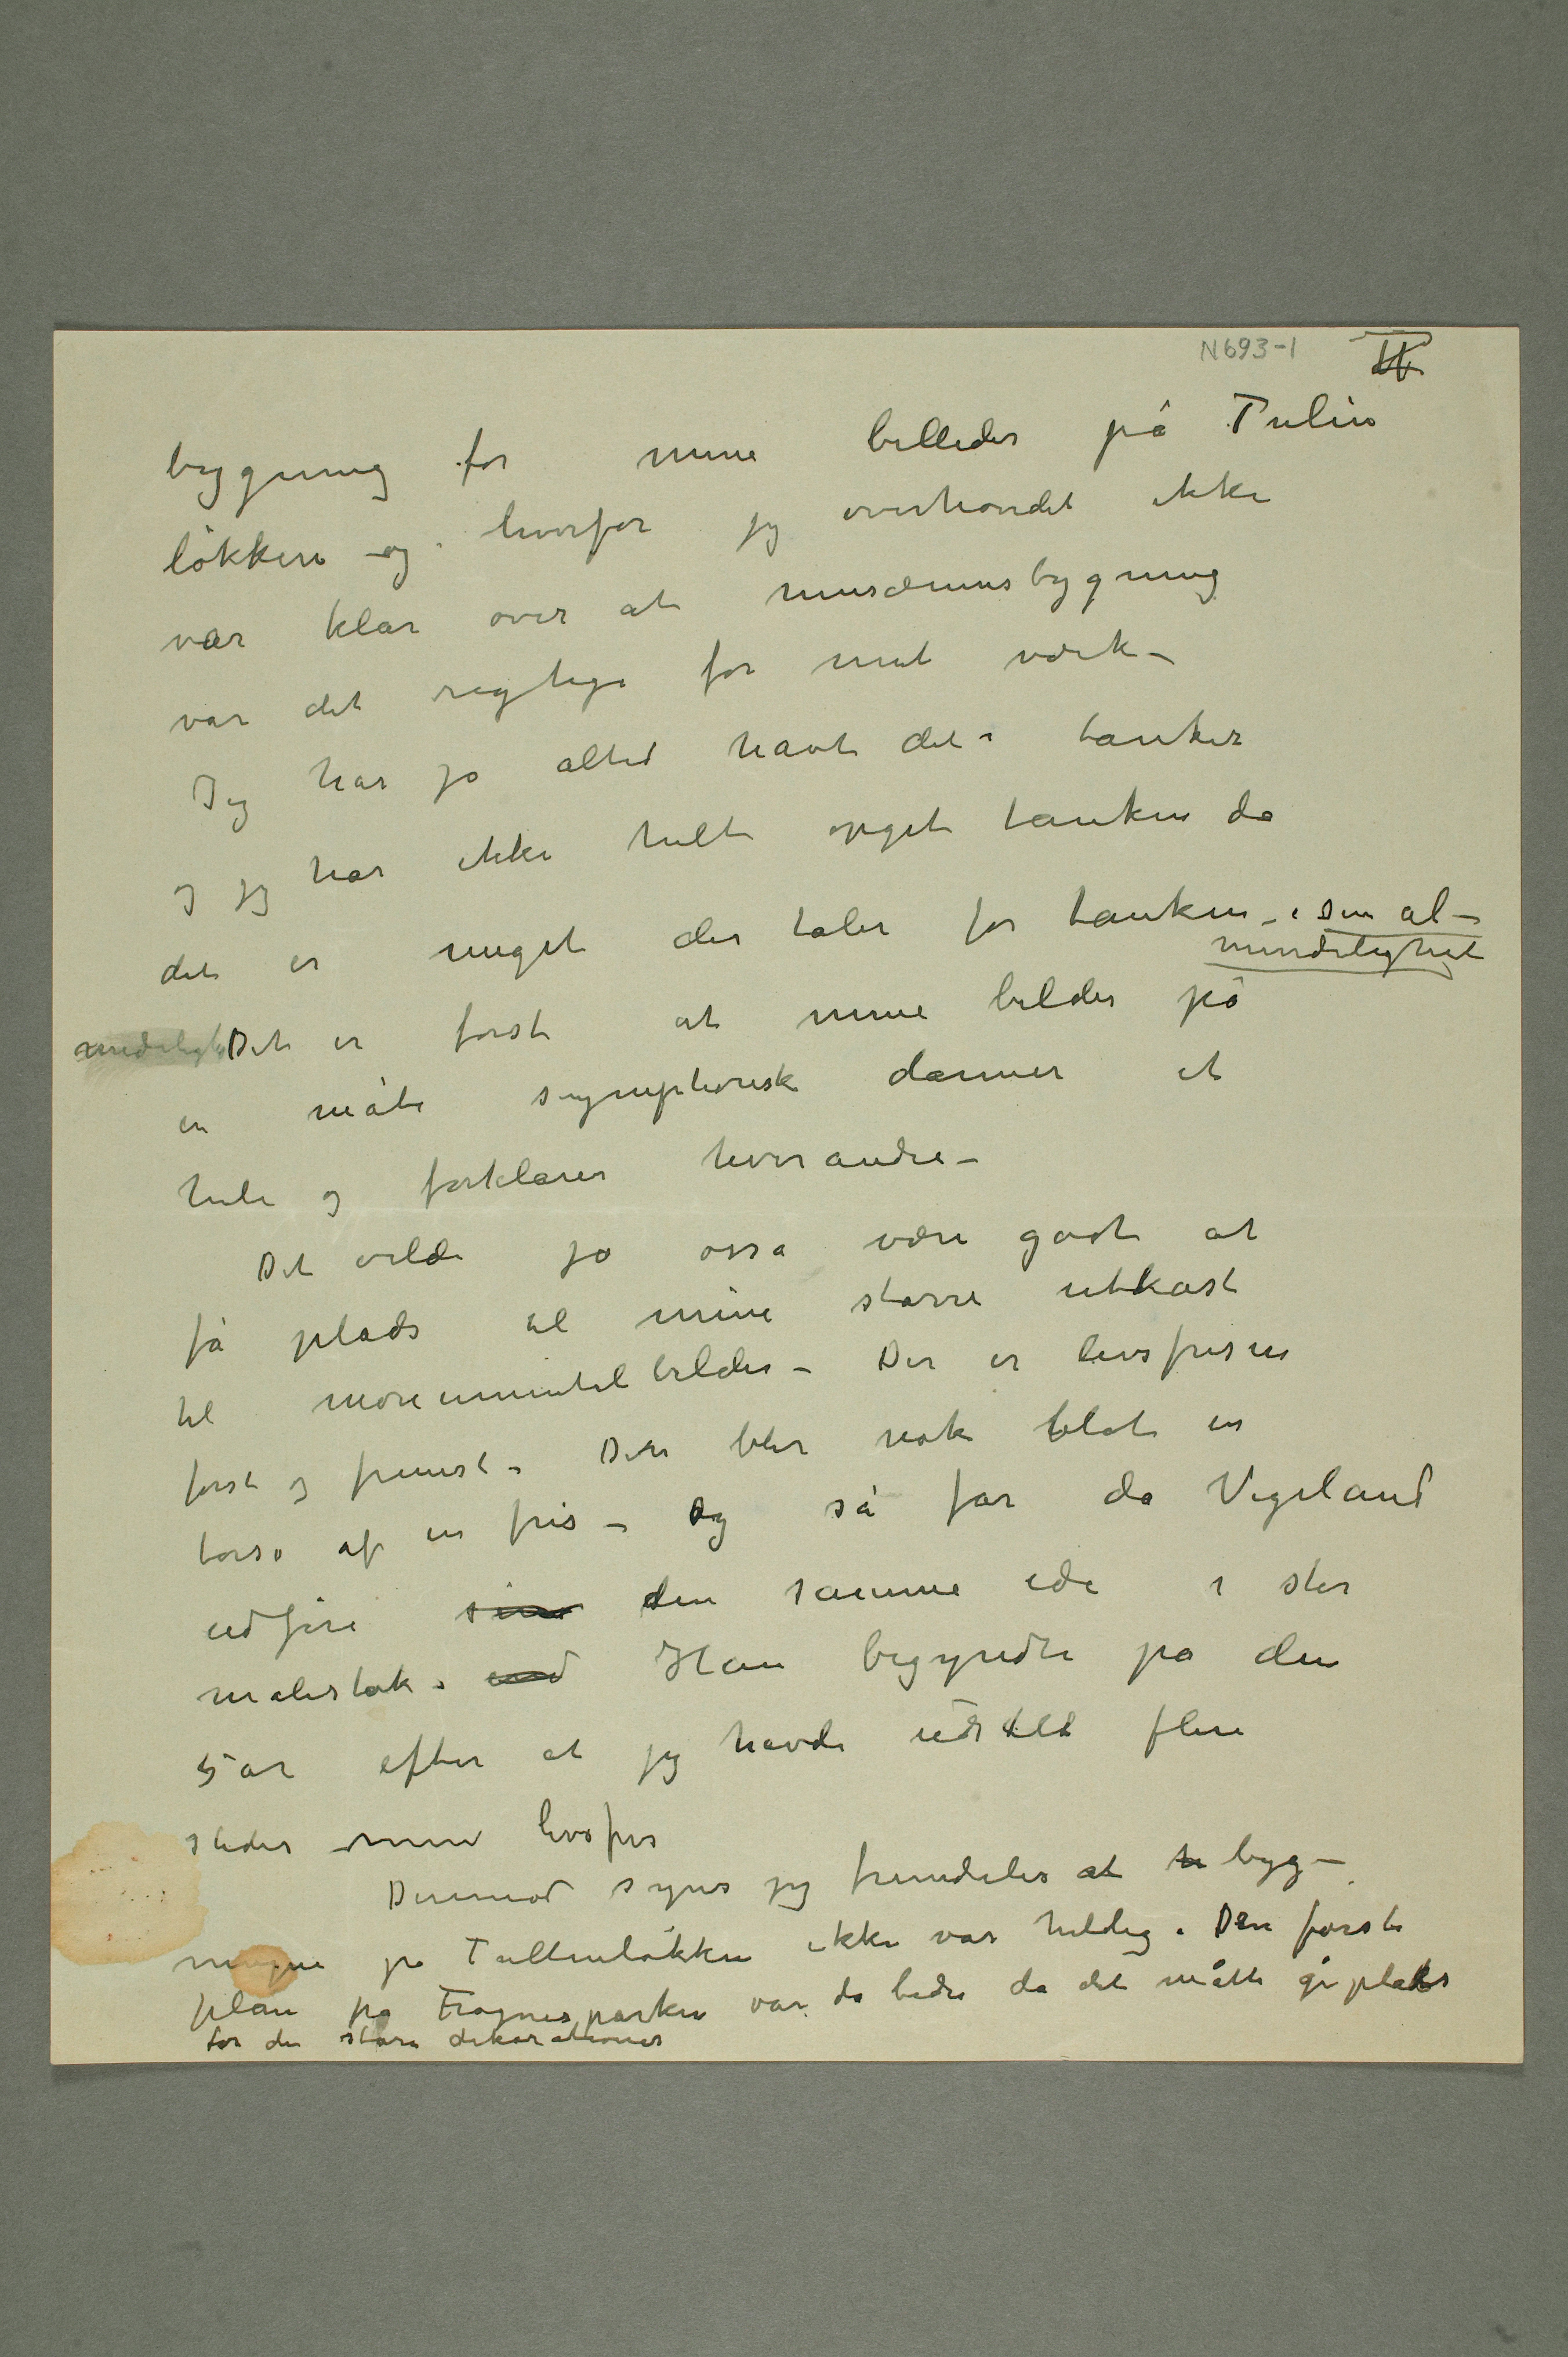 N693-1 II
bygning for mine billeder på Tulin
løkken og hvorfor jeg overhovdet ikke
var klar over at musæumsbygning
var det rigtige for mit værk –
Jeg har jo altid havt det i tanker
og jeg har ikke helt opget tanken da
det er meget der taler for tanken – i sin al-
mindelighet
Det er først at mine bilder på
en måte symphonisk danner et
hele og forklarer hverandre –
Det vilde jo osså være godt at
få plads til mine større utkast
til monumentalbilder – Der er livsfrisen
først og fremst – Den blir nok blot en
torso af en fris – Og så får da Vigeland
udføre sin den samme ide i stor
målestok. Han begyndte på den
5 år efter at jeg havde udstilt flere
steder min livsfris
Derimod synes jeg fremdeles at byg-
ningen på Tullinløkken ikke var heldig. Den første
plan på Frognerparken var da bedre da det måtte gi plads
for de store dekorationer